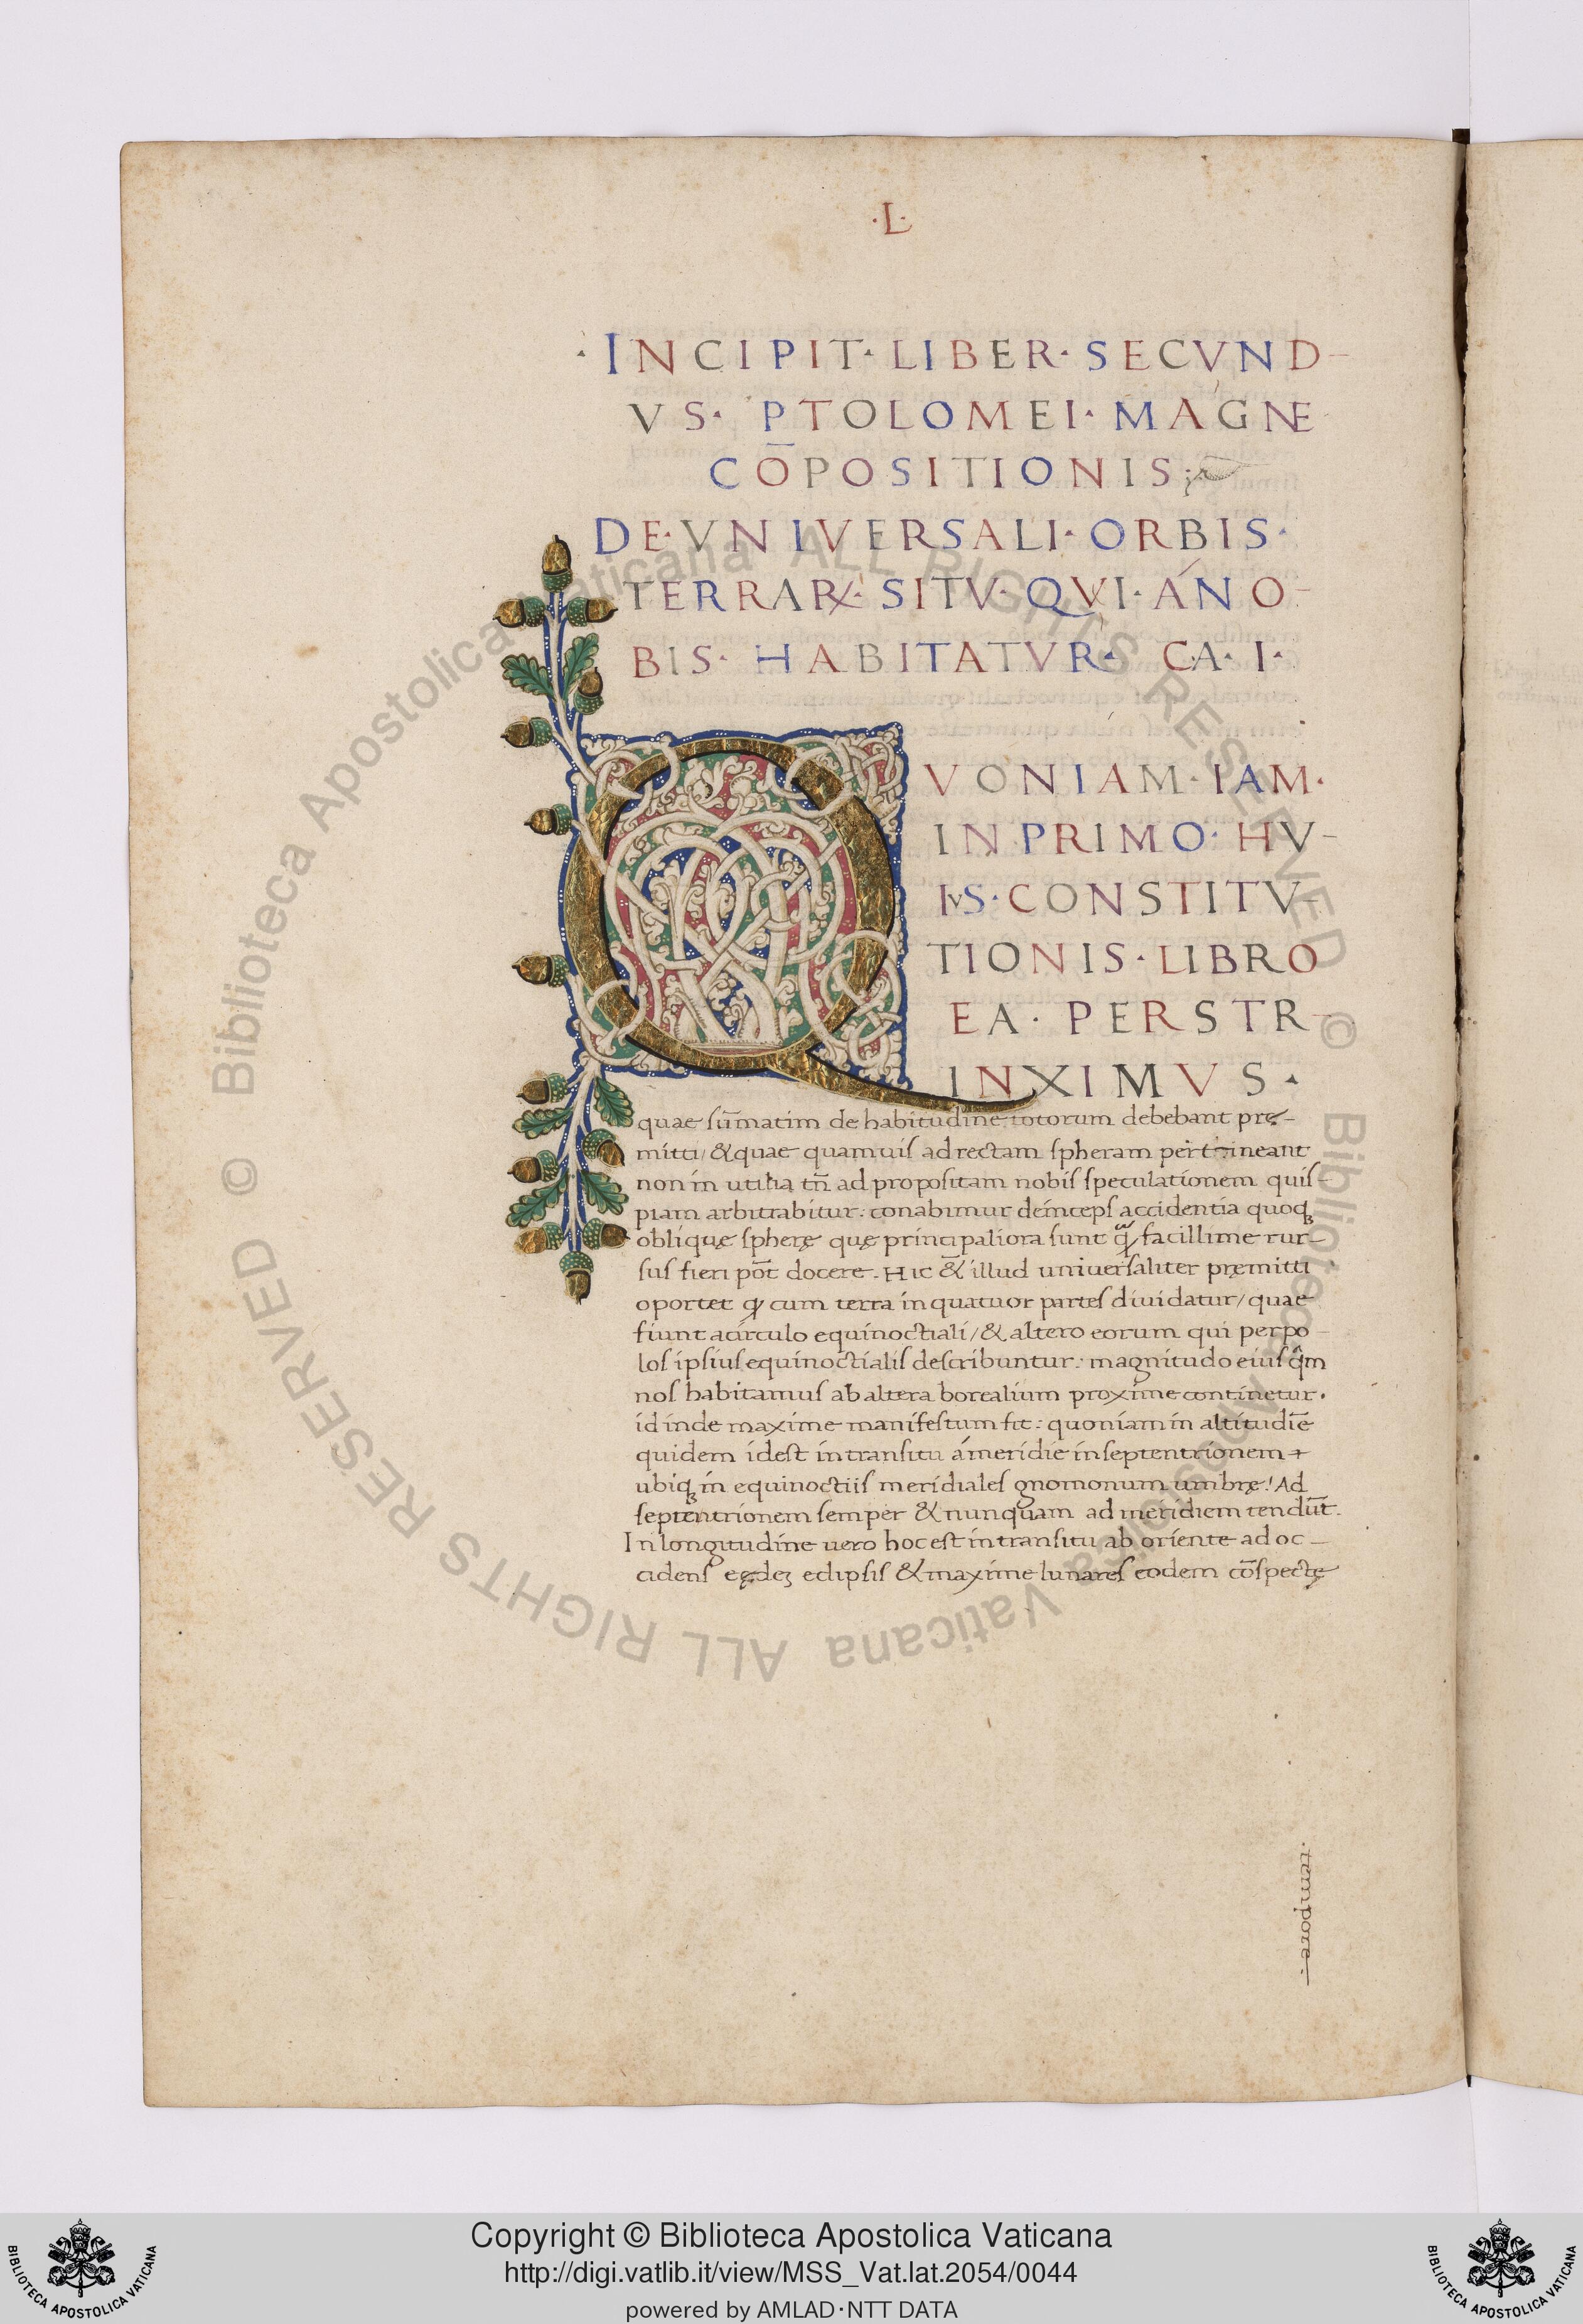 ·L·
·INCIPIT·LIBER·SECVND-
VS·PTOLOMEI·MAGNE
CO̅POSITIONIS
DE·VNIVERSALI·ORBIS·
TERRARꝜ·SITV·QVI·ÁNO-
BIS·HABITATVR·CA·I·
QVONIAM·IAM·
IN·PRIMO·HV-
IVS·CONSTITV-
TIONIS·LIBRO
EA·PERSTR-
INXIMVS·
quae su̅matim de habitudine totorum debebant prę-
mitti/ & quae quamuis ad rectam spheram pertineant
non in utilia tn̅ ad propositam nobis speculationem quis-
piam arbitrabitur: conabimur deínceps accidentia quoqꝫ
oblíquę spherę quę principaliora sunt facillime rur-
sus fieri po̅t docere. Hic & illud uniuersaliter pręmitti
oportet ꝙ cum terra ín quatuor partes diuidatur/ quae
fiunt acírculo equínoctialí/ & altero eorum qui per po-
los ipsius equínoctialis describuntur: magnitudo eius q̅m
nos habitamus ab altera borealium proxime continetur.
id inde maxime manifestum fit: quoníam ín altitudi̅e
quidem ídest ín transitu ámeridie ín septentrionem
ubiqꝫ ín equinoctiis merídiales gnomonum umbrę! Ad
septentrionem semper & nunquam ad meridiem tendu̅t.
In longitudíne uero hoc est ín transitu ab oríente ad oc-
cidens eędeꝫ eclipsis & maxime lunares eodem co̅spectę
·tempore·
© Biblioteca Apostolica Vaticana ALL RIGHTS RESERVED © Biblioteca Apostolica Vaticana ALL RIGHTS RESERVED
Copyright © Biblioteca Apostolica Vaticana
http://digi.vatlib.it/view/MSS_Vat.lat.2054/0044
powered by AMLAD·NTT DATA
BIBLIOTECA APOSTOLICA VATICANA
BIBLIOTECA APOSTOLICA VATICANA